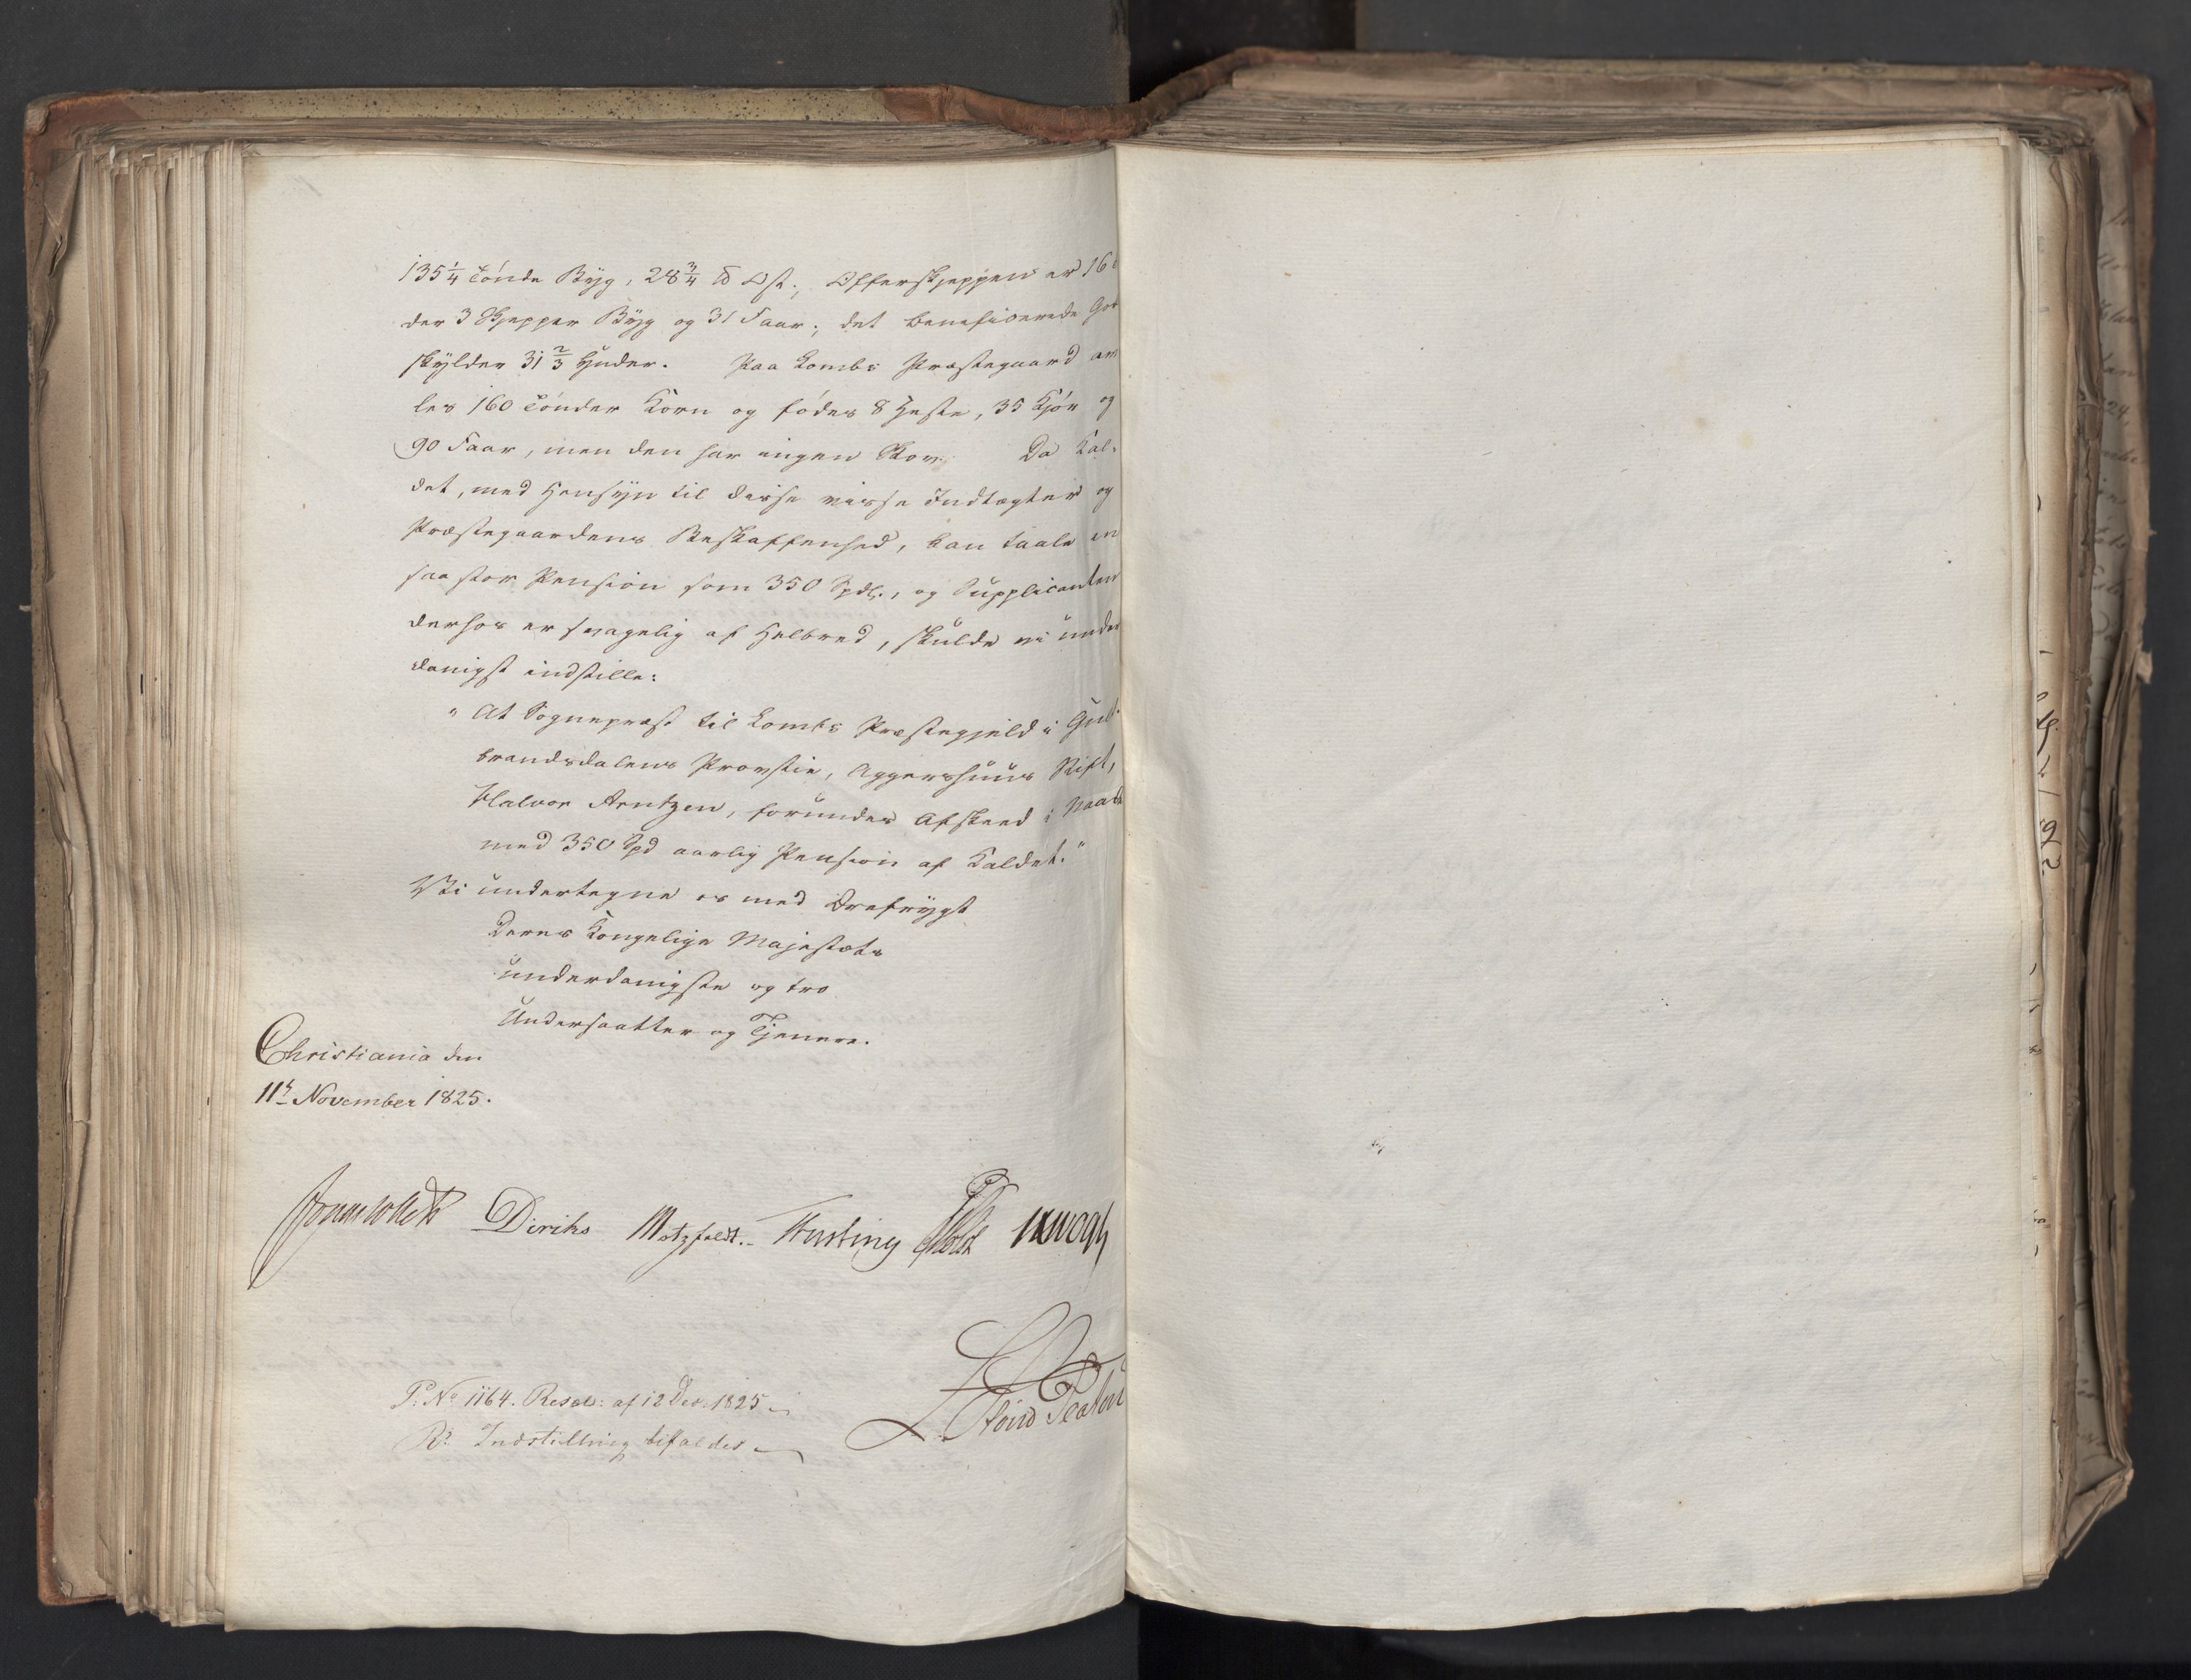 135¼ Tönde Byg, 28¾ ℔ Ost., Offerskjeppen er 16
der 3 Skjepper Byg og 31 Faar; det beneficerede Go
skylder 31⅔ Huder. Paa Lombs Præstegaard
les 160 Tönder Korn og födes 8 Heste, 35 Kjör og
90 Faar, men den har ingen Skov. Da Kal-
det, med Hensyn til disse visse Indtægter og
Præstegaardens Beskaffenhed, kan taale en
saa stor Pension som 350 Spdl., og Supplicanten
derhos er svagelig af Helbred, skulde vi under
danigst indstille:
"At Sognepræst til Lombs Præstegjeld i Guld-
brandsdalens Provstie, Aggershuus Stift,
Halvor Arntzen, forundes Afskeed i Naade
med 350 Spd aarlig Pension af Kaldet."
Vi undertegne os med Ærefrygt
Deres Kongelige Majestæts
underdanigste og tro
Undersaatter og Tjenere.
Christiania den
11t November 1825.
Jonas Collett Diriks Motzfeldt. Fasting Holst
P. No 1164. Resol: af 12 Dec. 1825
R: Indstilling bifaldes